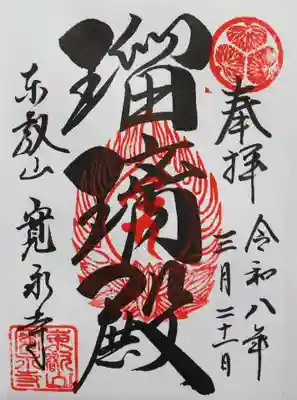 奉拝
令和八年
三月二十一日
瑠璃殿
東叡山 寛永寺
東叡山
寛永寺